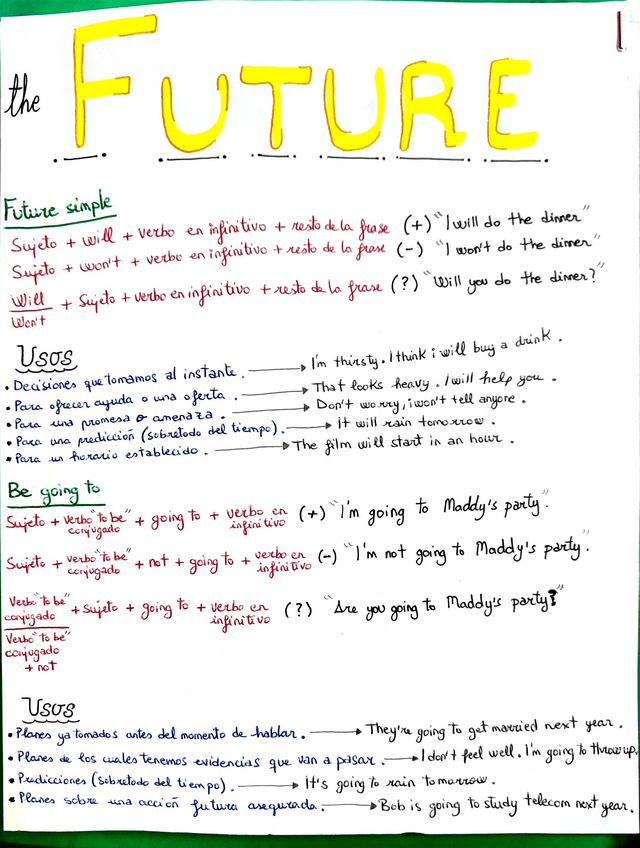 the FUTURE
Future simple
Sujeto + will + verbo en infinitivo + resto de la frase (+) "I will do the dinner"
Sujeto + won't + verbo en infinitivo + resto de la frase (-) "I won't do the dinner"
Will + Sujeto + verbo en infinitivo + resto de la frase (?) "Will you do the dinner?"
Won't
Usos
• Decisiones que tomamos al instante. → I'm thirsty. I think i will buy a drink.
• Para ofrecer ayuda o una oferta. → That looks heavy. I will help you.
• Para una promesa o amenaza. → Don't worry, i won't tell anyone.
• Para una predicción (sobretodo del tiempo). → It will rain tomorrow.
• Para un horario establecido. → The film will start in an hour.
Be going to
Sujeto + verbo "to be" conjugado + going to + verbo en infinitivo (+) "I'm going to Maddy's party".
Sujeto + verbo "to be" conjugado + not + going to + verbo en infinitivo (-) "I'm not going to Maddy's party".
Verbo "to be" conjugado + Sujeto + going to + verbo en infinitivo (?) "Are you going to Maddy's party?"
Verbo "to be"
conjugado
+ not
Usos
• Planes ya tomados antes del momento de hablar. → They're going to get married next year.
• Planes de los cuales tenemos evidencias que van a pasar. → I don't feel well. I'm going to throw up.
• Predicciones (sobretodo del tiempo). → It's going to rain tomorrow.
• Planes sobre una acción futura asegurada. → Bob is going to study telecom next year.